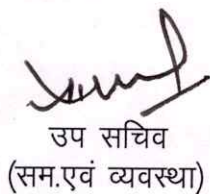 उप सचिव
(सम.एवं व्यवस्था)